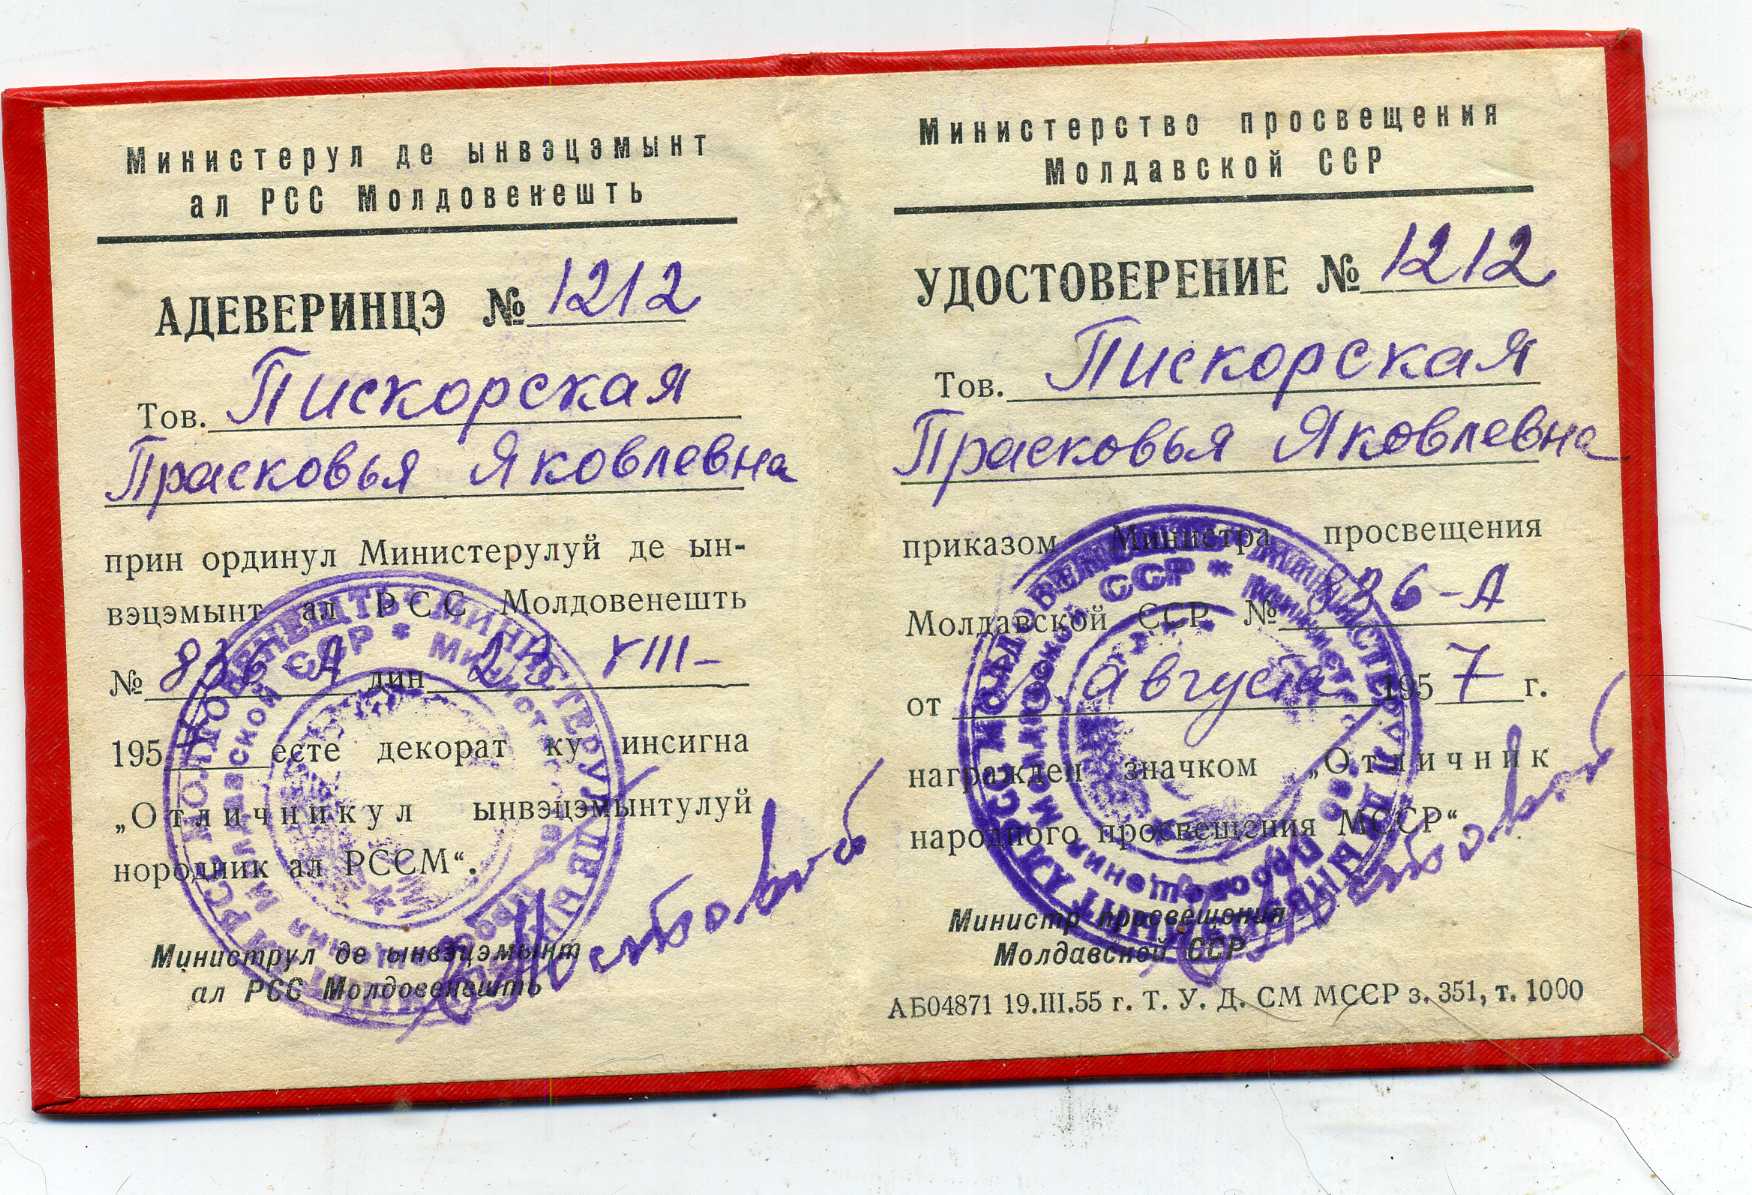 Министерул де ынвэцэмынт
ал РСС Молдовенешть
АДЕВЕРИНЦЭ № 1212
Тов. Пискорская
Прасковья Яковлевна
прин ординул Министерулуй де ын-
вэцэмынт ал РСС Молдовенешть
№ 836-А дин 23 VIII-
1957 есте декорат ку инсигна
„Отличникул ынвэцэмынтулуй
нородник ал РССМ“.
Министрул де ынвэцэмынт
ал РСС Молдовенешть
Министерство просвещения
Молдавской ССР
УДОСТОВЕРЕНИЕ № 1212
Тов. Пискорская
Прасковья Яковлевна
приказом Министра просвещения
Молдавской ССР № 836-А
от августа 1957 г.
награжден значком „Отличник
народного просвещения МССР“
Министр просвещения
Молдавской ССР
АБ04871 19.III.55 г. Т. У. Д. СМ МССР з. 351, т. 1000